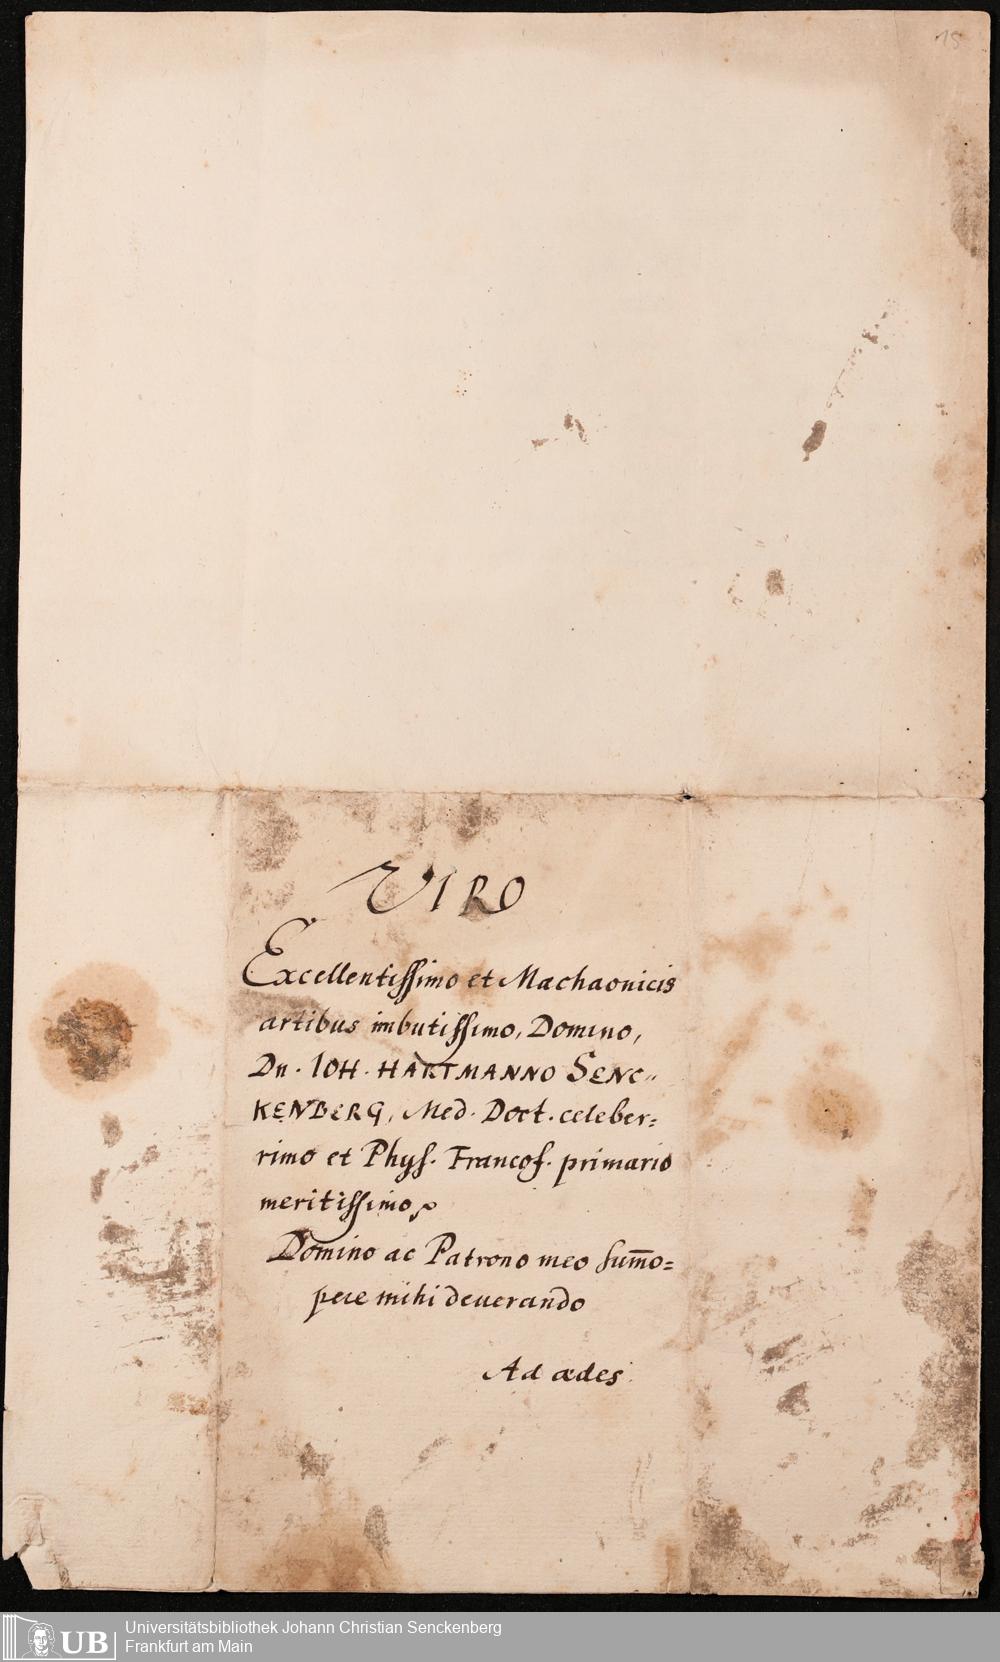 15
VIRO
Excellentissimo et Machaonicis
artibus imbutissimo, Domino,
Dn. IOH. HARTMANNO SENC-
KENBERG, Med. Doct. celeber=
rimo et Phys. Francof. primario
meritissimo,
Domino ac Patrono meo sum̄o=
pere mihi deuerando
Ad aedes.
UB
Universitätsbibliothek Johann Christian Senckenberg
Frankfurt am Main